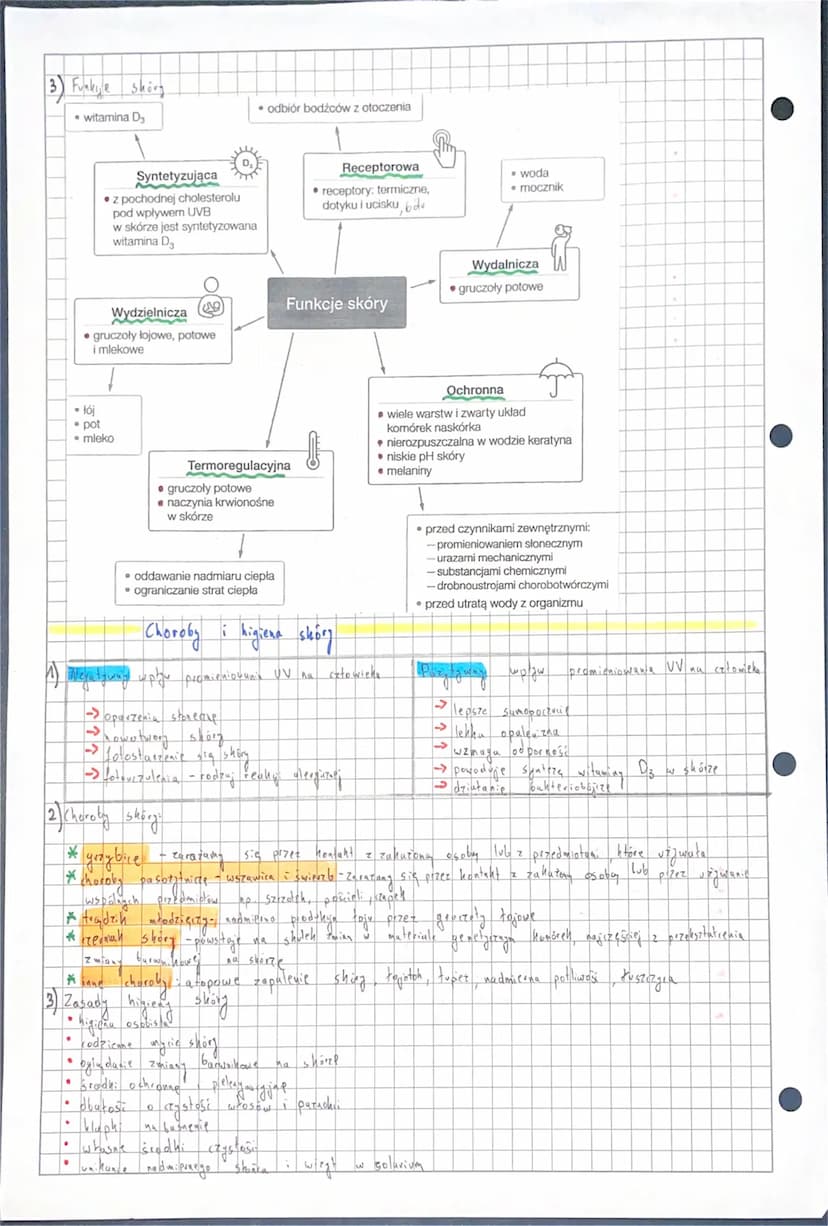 3) Funkcje skóry
• witamina D₃
• odbiór bodźców z otoczenia
D₃
Syntetyzująca
• z pochodnej cholesterolu
pod wpływem UVB
w skórze jest syntetyzowana
witamina D₃
Receptorowa
• receptory: termiczne,
dotyku i ucisku, bólu
• woda
• mocznik
Wydalnicza
• gruczoły potowe
Funkcje skóry
Wydzielnicza
• gruczoły łojowe, potowe
i mlekowe
• łój
• pot
• mleko
Ochronna
• wiele warstw i zwarty układ
komórek naskórka
• nierozpuszczalna w wodzie keratyna
• niskie pH skóry
• melaniny
Termoregulacyjna
• gruczoły potowe
• naczynia krwionośne
w skórze
• przed czynnikami zewnętrznymi:
– promieniowaniem słonecznym
– urazami mechanicznymi
– substancjami chemicznymi
– drobnoustrojami chorobotwórczymi
• przed utratą wody z organizmu
• oddawanie nadmiaru ciepła
• ograniczanie strat ciepła
Choroby i higiena skóry
1) Negatywny wpływ promieniowania UV na człowieka
→ oparzenia słoneczne
→ nowotwory skóry
→ fotostarzenie się skóry
→ fotouczulenia - rodzaj reakcji alergicznej
Pozytywny wpływ promieniowania UV na człowieka
→ lepsze samopoczucie
→ lekka opalenizna
→ wzmaga odporność
→ powoduje syntezę witaminy D₃ w skórze
→ działanie bakteriobójcze
2) Choroby skóry:
* grzybice - zarażamy się przez kontakt z zakażoną osobą lub z przedmiotami, które używała
* choroby pasożytnicze - wszawica i świerzb - zarażamy się przez kontakt z zakażoną osobą lub przez używanie
wspólnych przedmiotów np. szczotek, pościeli, czapek
* trądzik młodzieńczy - nadmierna produkcja łoju przez gruczoły łojowe
* czerniak skóry - powstaje na skutek zmian w materiale genetycznym komórek, najczęściej z przekształcenia
zmiany barwnikowej na skórze
* inne choroby: atopowe zapalenie skóry, łojotok, łupież, nadmierna potliwość, łuszczyca
3) Zasady higieny skóry
• higiena osobista
• codzienne mycie skóry
• oglądanie zmiany barwnikowe na skórze
• środki ochronne i pielęgnacyjne
• dbałość o czystość włosów i paznokci
• klapki na basenie
• własne środki czystości
• unikanie nadmiernego słońca i wizyt w solarium